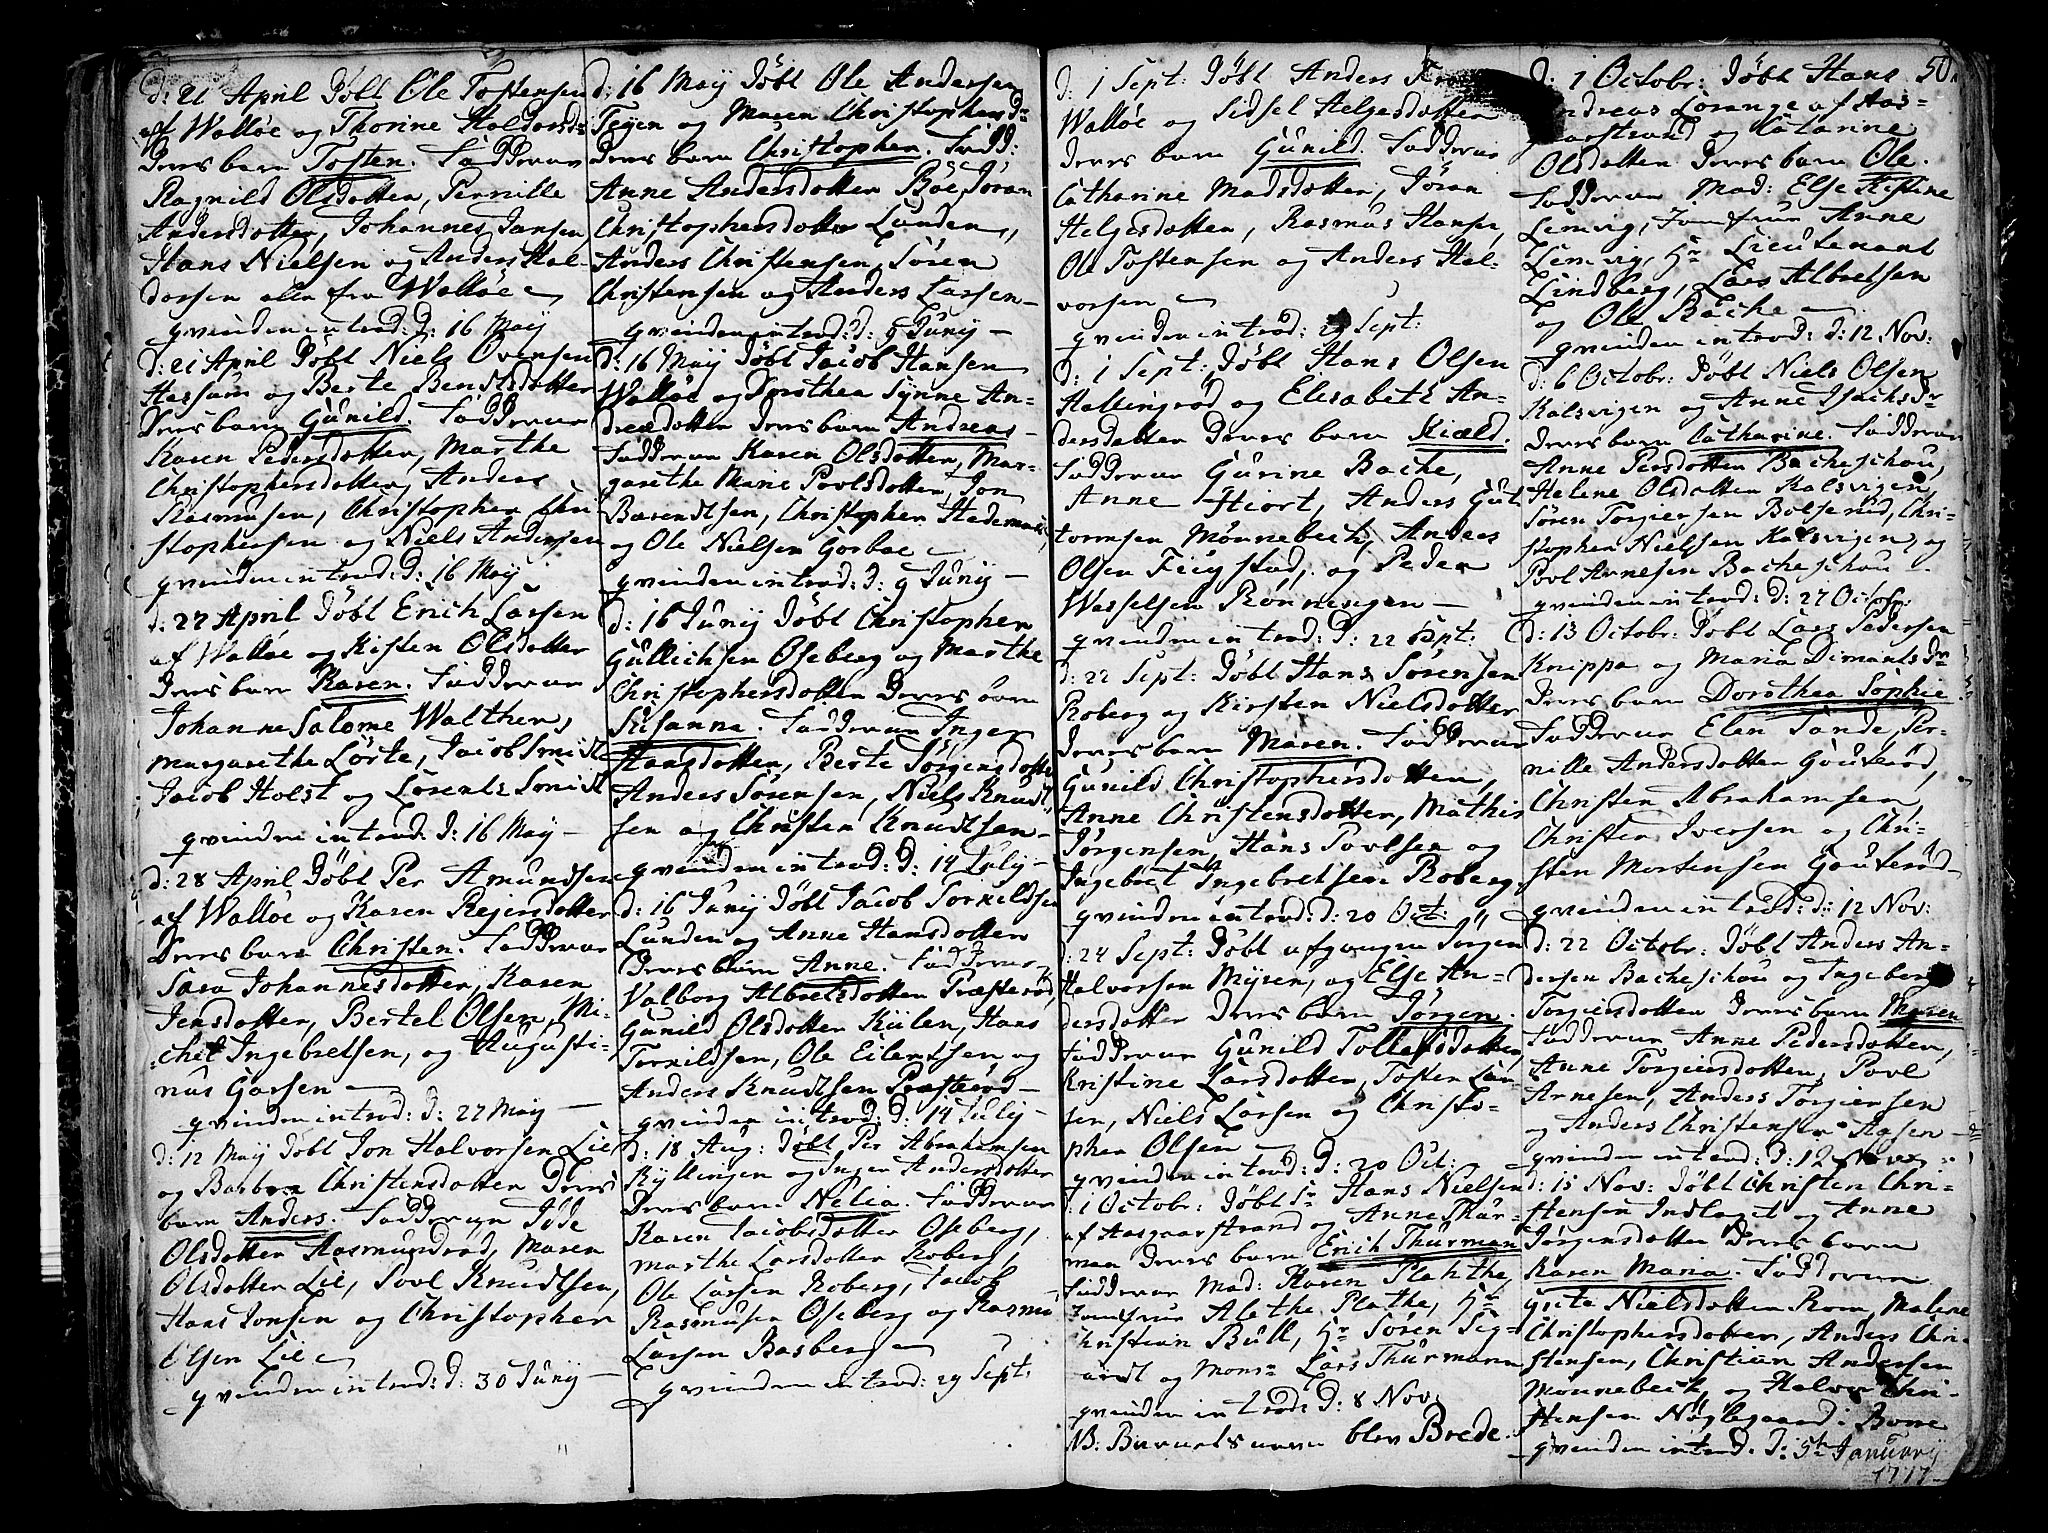 d: 21 April Döbt Ole Tostensen
af Walløe og Thorine Haldorsd=
Deres barn Tosten. Faddere
Ragnild Olsdotter, Pernille
Andersdotter, Johannes Jansen,
Hans Nielsen og Anders Hal=
dorsen alle fra Walløe
qvinden introd: d: 16 May
d: 21 April Döbt Niels Ovensen
Hassum og Berte Bendtsdotter
Deres barn Gunild. Faddere
Karen Pedersdotter, Marthe
Christophersdotter, Anders
Rasmusen, Christopher Chri
stophersen og Niels Andersen
qvinden introd: d: 16 May
d: 27 April Döbt Erich Larsen
af Walløe og Kisten Olsdotter
Deres barn Karen. Faddere
Johanne Salome Walther,
Margarethe Lörte, Jacob Smidt
Jacob Holst og Lorentz Smidt
qvinden introd: d: 16 May
d: 28 April Döbt Per Amundsen
af Walløe og Karen Rejersdotter
Deres barn Christen. Faddere
Sara Johannesdotter, Karen
Jensdotter, Bertel Olsen, Mi=
chel Ingebretsen, og Augusti=
nus Garsen
qvinden introd: d: 27 May
d: 12 May Döbt Jon Halvorsen Lie
og Barbra Christensdotter Deres
barn Anders. Faddere Jöde
Olsdotter Aasmundröd, Maren
Olsdotter Lie, Povl Knudtsen,
Hans Jonsen og Christopher
Olsen Lie
qvinden introd: d: 30 Junij
d: 16 Maij Döbt Ole Andersen
Teyen og Maren Christophersd=
Deres barn Christopher. Fadd:
Anne Andersdotter Böe, Jöran
Christophersdotter Lunden,
Anders Christensen, Sören
Christensen og Anders Larsen
qvinden introd: d: 9 Junij
d: 16 Maij Döbt Jacob Hansen
Walløe og Dorthea Synne An=
dreædotter Deres barn Andreas
Faddere Karen Olsdotter, Mar=
garethe Marie Povlsdotter, Jon
Barendtsen, Christopher Hedemark,
og Ole Nielsen Gorboe
qvinden introd: d: 9 Junij
d: 16 Junij Döbt Christopher
Gullichsen Oseberg og Marthe
Christophersdotter Deres barn
Susanna. Faddere Inger
Hansdotter, Berte Jörgensdotter
Anders Sörensen, Niels Knudt
sen og Christen Knudtsen
qvinden introd: d: 14 Julij
d: 16 Junij Döbt Jacob Torkildsen
Lunden og Anne Hansdotter
Deres barn Anne. Faddere
Valborg Albretsdotter Præsteröd,
Gunild Olsdotter Kiilen, Hans
Torkildsen, Ole Eilertsen, og
Anders Knudtsen Præsteröd
qvinden introd: d: 14 Julij
d: 18 Aug: Döbt Per Abrahamsen
Kyllingen og Inger Andersdotter
Deres barn Nelia. Faddere
Karen Jacobsdotter Oseberg,
Marthe Larsdotter Roberg,
Ole Larsen Roberg, Jacob
Rasmusen Oseberg og Rasmu
Larsen Basberg
qvinden introd: 29 Sept:
d: 1 Sept: Döbt Anders
Walløe og Sidsel Helgesdotter
Deres barn Gunild. Faddere
Catharine Madsdotter, Jöran
Helgesdotter, Rasmus Hansen,
Ole Tostensen og Anders Hal=
vorsen
qvinden introd: 29 Sept:
d: 1 Sept: Döbt Hans Olsen
Hallingröd og Elisabeth An=
dersdotter Deres barn Kield.
Faddere Gurine Bache,
Anne Hiort, Anders Gut
tormsen Mönnebech, Anders
Olsen Feigstad, og Peder
Wasselsen Rönningen
qvinden introd: d: 22 Sept:
d: 22 Sept: Döbt Hans Sörensen
Roberg og Kirsten Nielsdotter
Deres barn Maren. Faddere
Gunild Christophersdotter,
Anne Christensdotter, Mathis
Jörgensen, Hans Povlsen og
Ingebret Ingebretsen Roberg
qvinden introd: d: 20 Oct:
d: 24 Sept: Döbt afgangen Jörgen
Halvorsen Myren, og Else An=
dersdotter Deres barn Jörgen.
Faddere Gunild Tollefsdotter,
Kristine Larsdotter, Tosten Lar=
sen, Niels Larsen og Christo=
pher Olsen
qvinden introd: d: 20 Oct:
d: 1 Octobr: Döbt Sr Hans Nielsen
af Aasgaarstrand og Anne Thur=
man Deres barn Erich Thurman
Faddere Mad: Karen Plahthe,
Jomfrue Alethe Plathe, Hr
Christian Bull, Hr Sören Sig=
vardt og Mons= Lars Thurmann
qvinden introd: d: 8 Nov:
NB: Barnets navn blev Brede.
50.
d: 1 Octobr: Döbt Hans
Andreas Lorange af Aas=
gaarstrand og Catarine
Olsdotter Deres barn Ole.
Faddere Mad: Else Kistine
Lemvig, Jomfrue Anne
Lemvig, Hr Lieutenant
Lindberg, Lars Albretsen
og Ole Bache
qvinden introd: d: 12 Nov:
d: 6 Octobr: Döbt Niels Olsen
Kalsvigen og Anne Isachsdr
Deres barn Catharine. Faddere
Anne Persdotter Bacheschou,
Helene Olsdotter Kalsvigen,
Sören Torgiersen Bolseröd, Chri=
stopher Nielsen Kalsvigen, og
Povl Arnesen Bacheschou
qvinden introd: d: 27 Octobr:
d: 13 Octobr: Döbt Lars Pedersen
Knippa og Maria Dimantsdr
Deres barn Dorothea Sophie
Faddere Elen Sande, Per=
nille Andersdotter Gouteröd,
Christen Abrahamsen,
Christen Iversen og Chri=
sten Mortensen Gouteröd
qvinden introd: d: 12 Nov:
d: 22 Octobr: Döbt Anders An=
dersen Bacheschou og Ingeborg
Torgiersdotter Deres barn Maren
Faddere Anne Pedersdotter,
Anne Torgiersdotter, Povl
Arnesen, Anders Torgiersen
og Anders Christensen Aasen
qvinden introd: d: 12 Nov:
d: 15 Nov: Döbt Christen Chri=
stensen Indlaget og Anne
Jörgensdotter Deres barn
Karen Maria. Faddere
Gute Nielsdotter Rom, Malene
Christophersdotter, Anders Chri=
stensen, Christian Andersen
Mönnebech, og Halvor Chri=
stensen Nöglegaard i Borre
qvinden introd. d: 5te January
1777